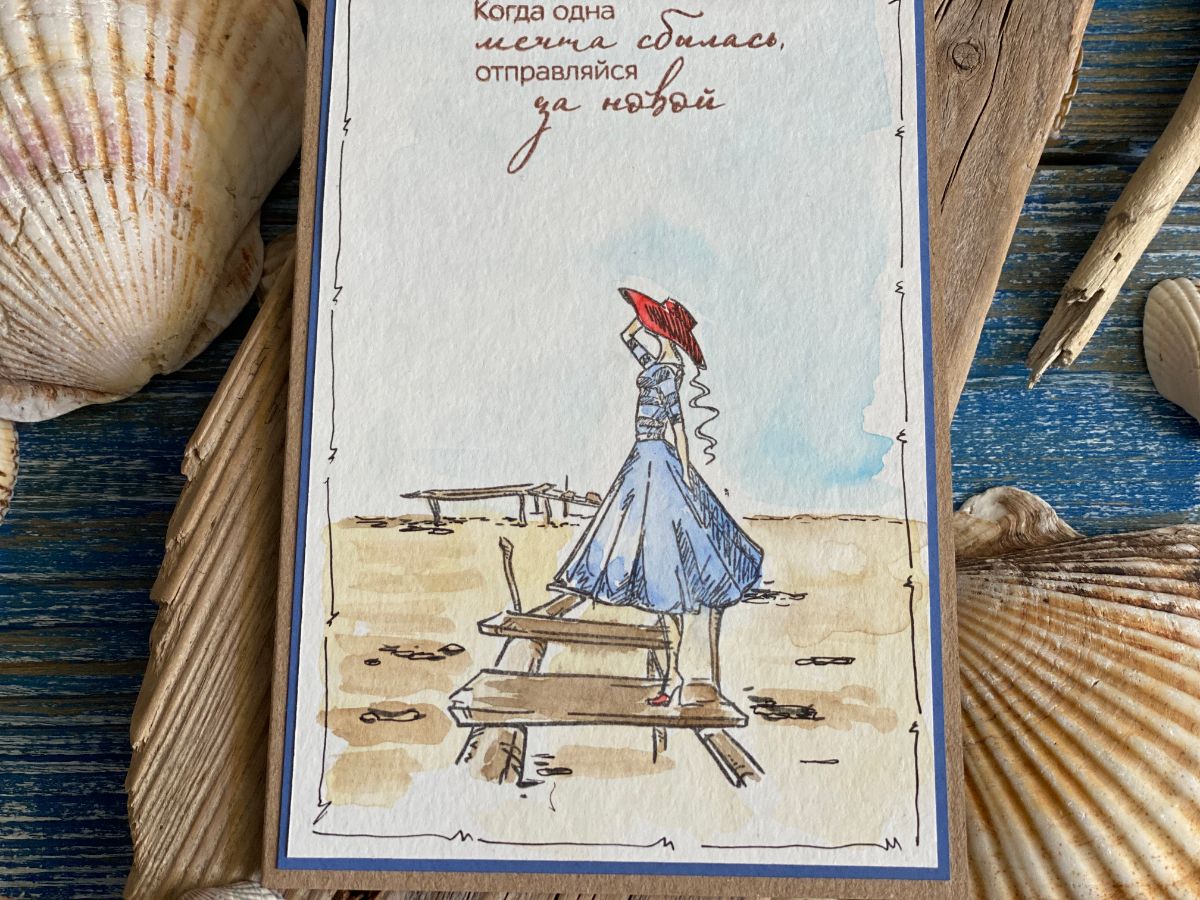 Когда одна
мечта сбылась,
отправляйся
за новой